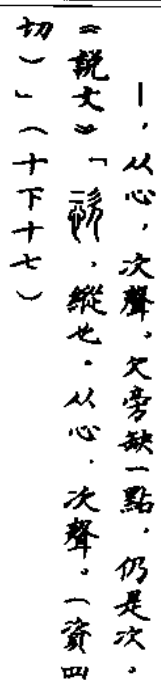 —，从心，次聲。欠旁缺一點，仍是次。
《說文》「，縱也。从心，次聲。（資四
切）」（十下十七）